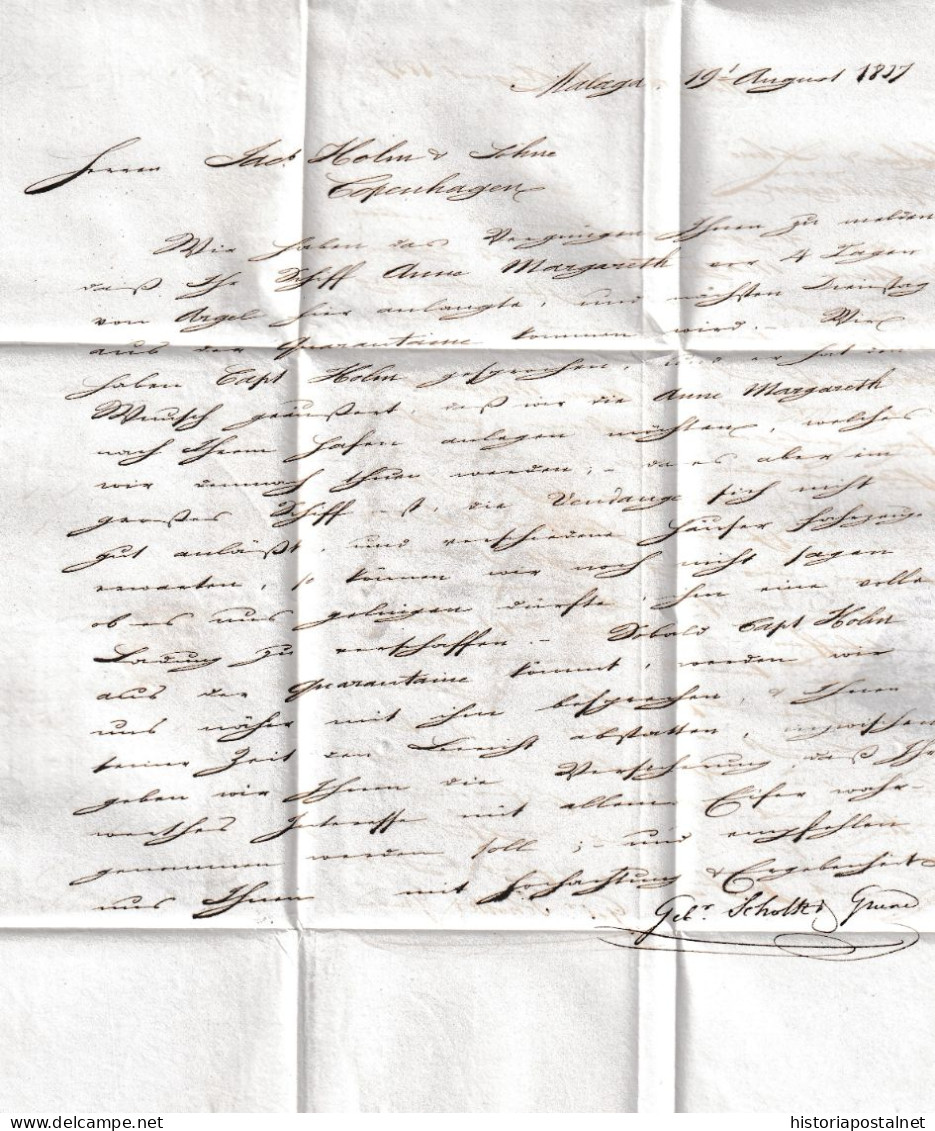 Malaga, 19t August 1837
Herren Jacb. Holm & Sohne
Copenhagen
Wir haben das Vergnügen Ihnen zu melden
daß Ihr Schiff Anne Margareth vor 4 Tagen
von Argel hier anlangte, und nächsten Dienstag
aus der Quarantaine kommen wird. – Wir
haben Capt Holm gesprochen, und er hat den
Wunsch geäussert, daß wir die Anne Margareth
nach Ihrem Hafen anlegen möchten, welches
wir demnach thun werden; – da es aber ein
grosses Schiff ist, die Vendange sich nicht
gut anläßt, und verschiedene Häuser
erwarten, so können wir noch nicht sagen
ob es uns gelingen dürfte, ihm eine volle
Ladung zu verschaffen. – Sobald Capt Holm
aus der Quarantaine kommt, werden wir
uns näher mit ihm besprechen, & Ihnen
seiner Zeit den Bericht abstatten, inzwischen
geben wir Ihnen die Versicherung, daß Ihr
werthes Interesse mit allem Eifer wahr-
genommen werden soll; – und empfehlen
uns Ihnen mit Hochachtung & Ergebenheit
Gebr. Scholtz
historiapostalnet